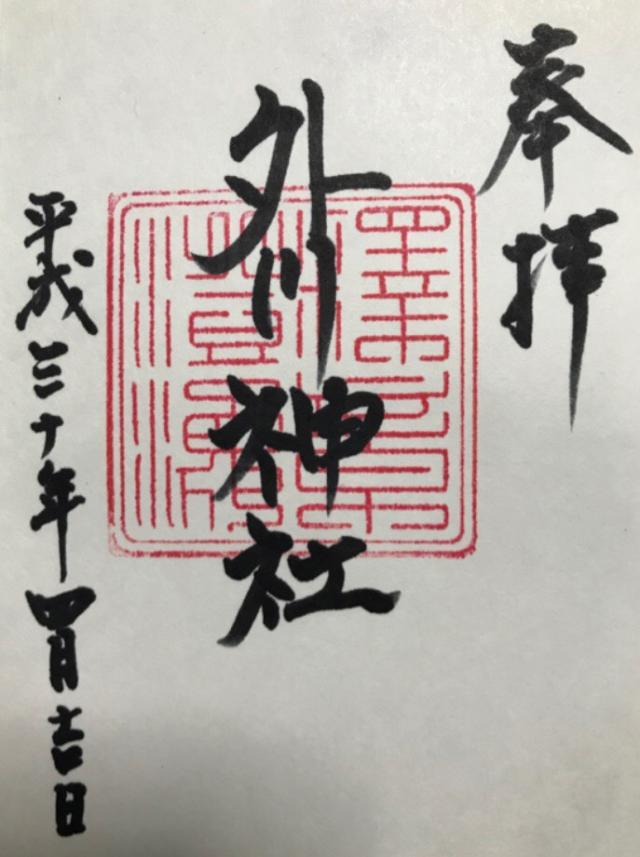 奉拝
外川神社
平成三十年四月吉日